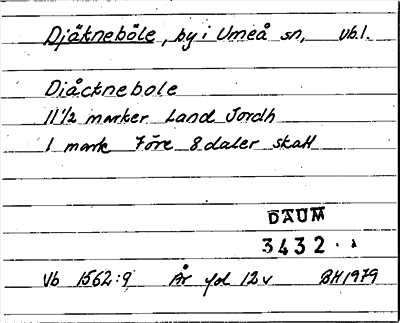 Djäkneböle, by i Umeå sn, Vb.l.
Diåcknebole
11 1/2 marker Land Jordh
1 mark före 8 daler skatt
DAUM
3432
Vb 1562:9 År fol 12v BH 1979